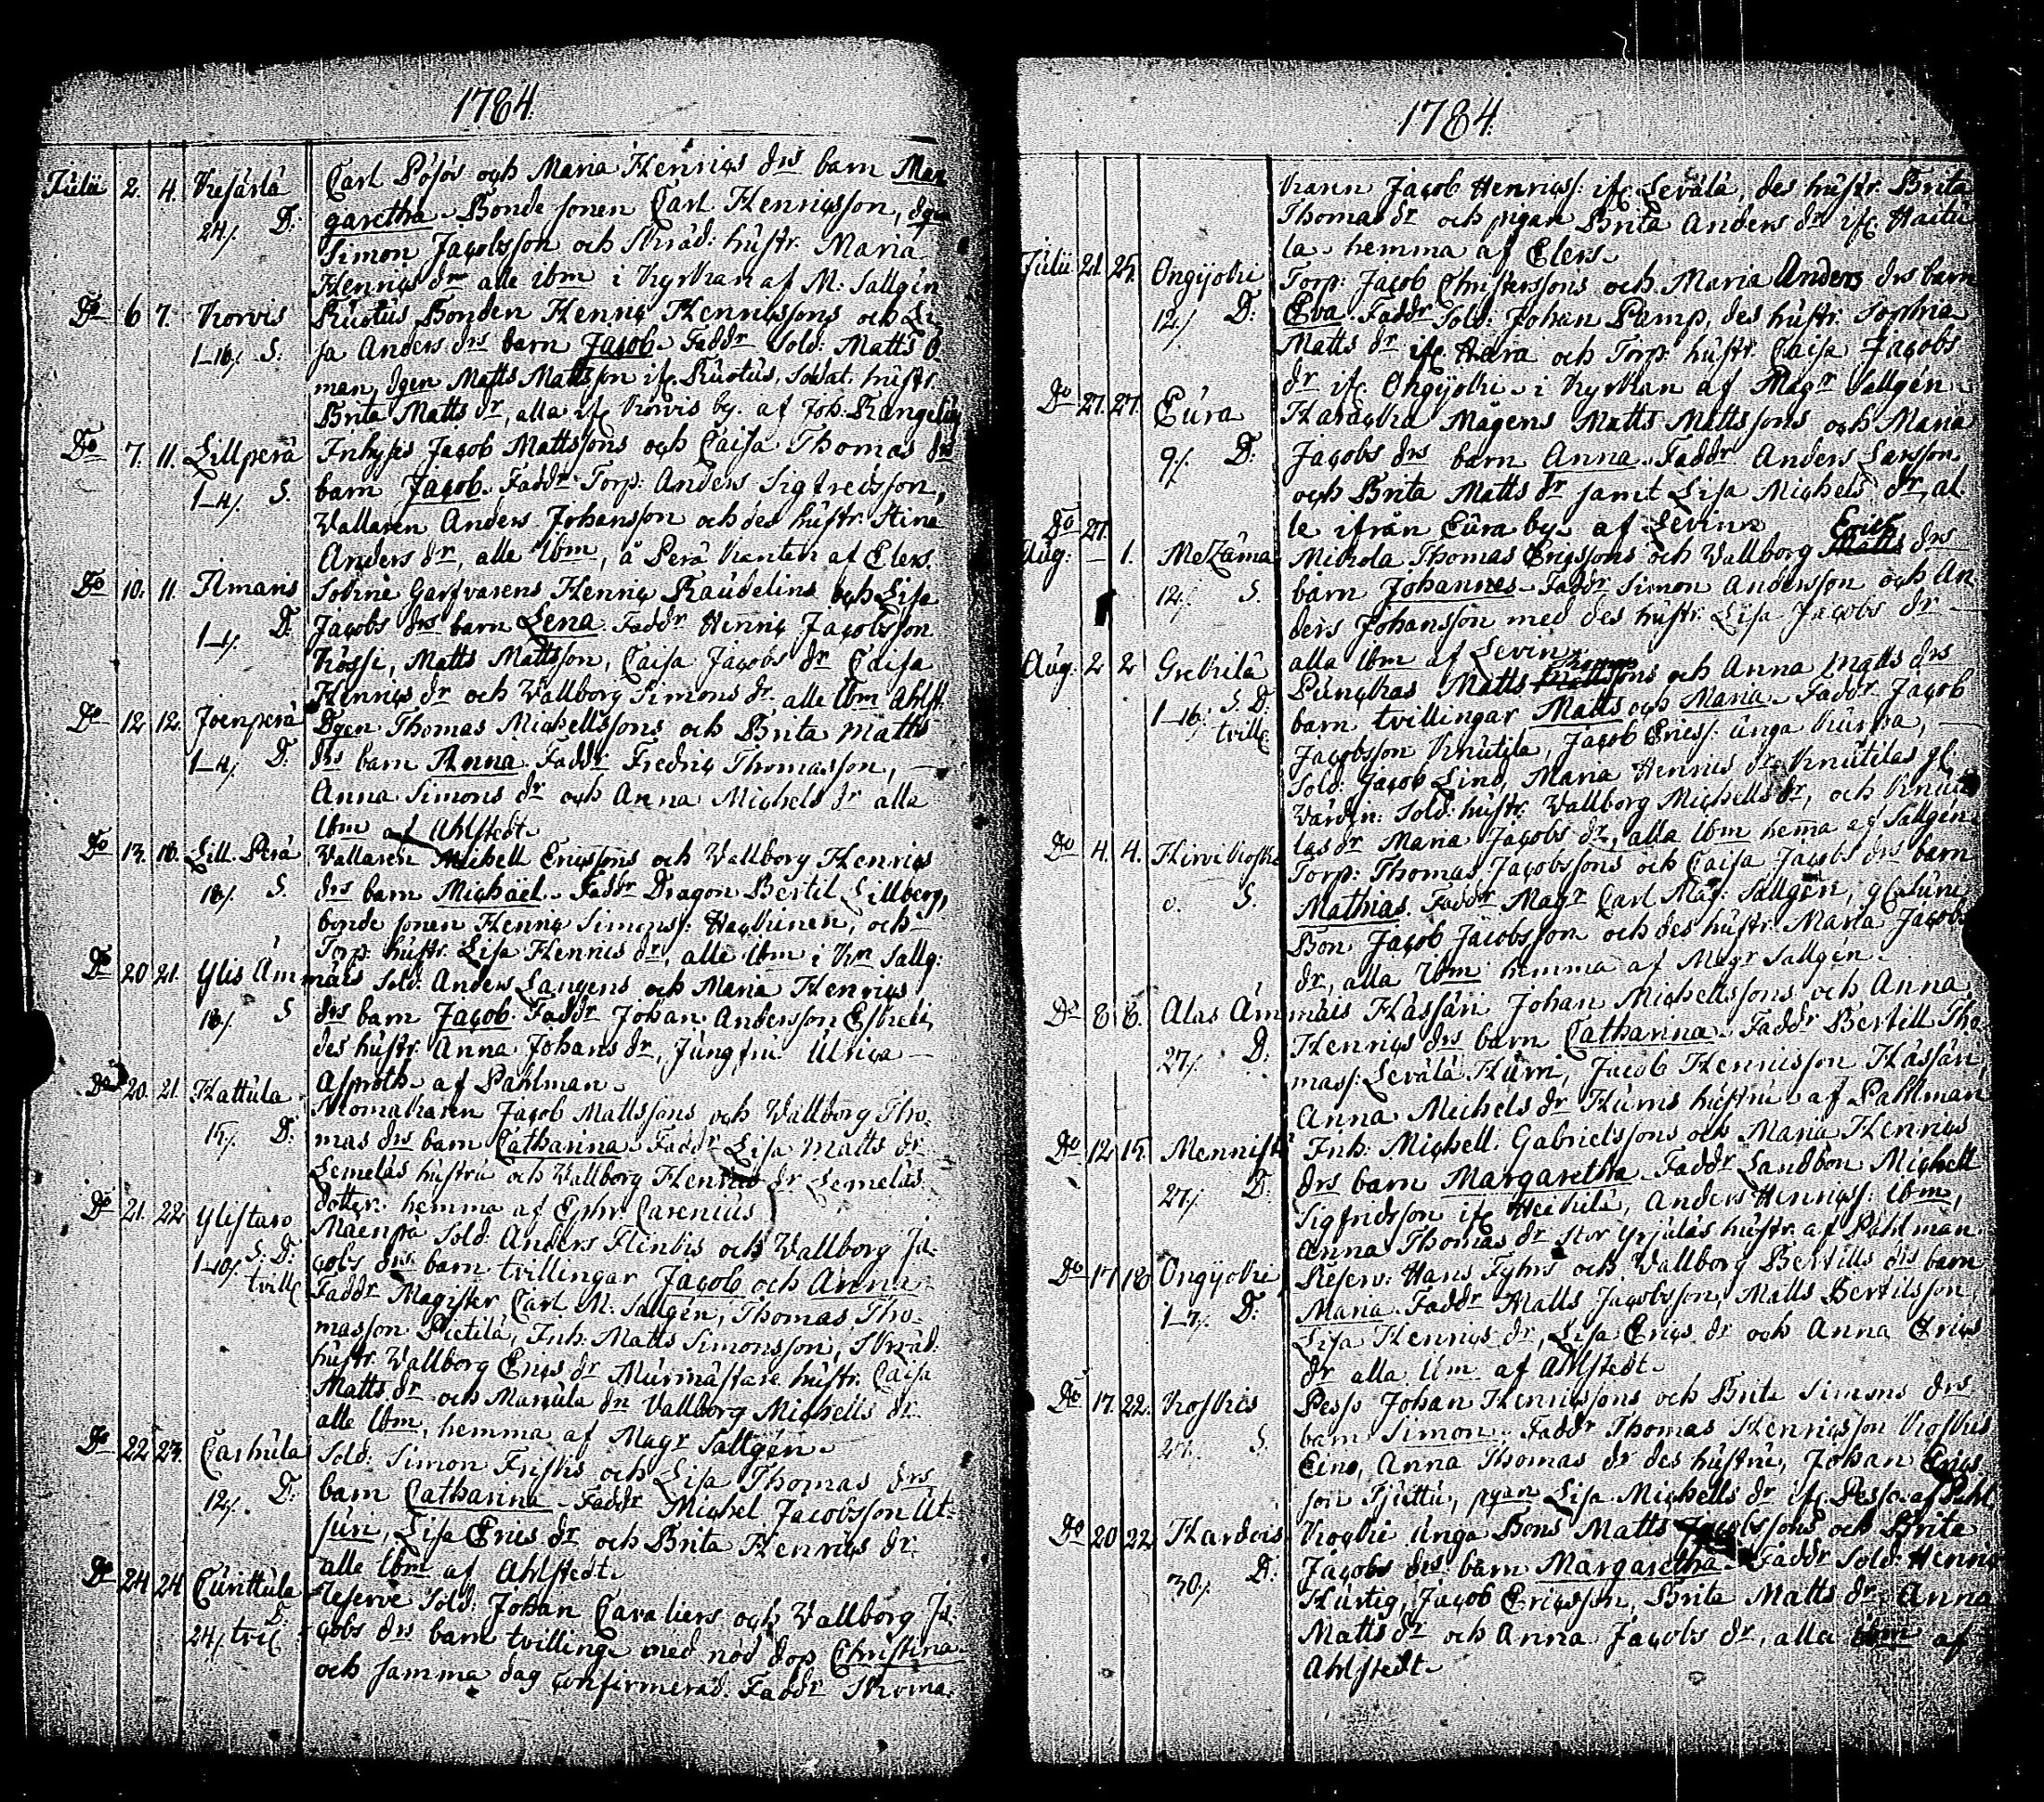 1784.
Julii 2. 4. Kesärlä Carl Pösös och Maria Henriçs drs barn Mar
garetha. Bonde sonen Carl Henriçsson, dgen
24/. D: Simon Jacobsson och Skräd: hustr. Maria
Henriçs dr alle ibm i Kyrkan af M: Sallgén
Do 6 7. Korvis Ruotus Bonden Henriç Henriçssons och Li
1_16/. S: sa Anders drs barn Jacob. Faddr Sold: Matts Ö
man, dgen Matts Mattsson ifr. Ruotus, Soldat. hustr.
Brita Matts dr, alla ifr Korvis by. af Joh. Rangeliin
Do 7. 11. Lillperä Inhyses Jacob Mattssons och Caisa Thomas drs
1_4/. S. barn Jacob. Faddr Torp: Anders Sigfredsson,
Wallaren Anders Johansson och des hustr. Stina
Anders dr, alle ibm, å Perä Kanten af Elers.
Do 10. 11. Ilmaris Garfvarens Henriç Raudelins och Lisa
1_4/. D: Jacobs drs barn Lena Faddr Henriç Jacobsson
Kössi, Matts Mattsson, Caisa Jacobs dr Caisa
Henriçs dr och Wallborg Simons dr. alle ibm Ahlst.
Do 12. 12. Joenperä Dgen Thomas Michellssons och Brita Matts
1_4/. D: drs barn Anna. Faddr Fredriç Thomasson,
Anna Simons dr och Anna Michels dr alla
ibm af Ahlstedt.
Do 13. 18. Lill. Perä Vallaren Michell Ericssons och Wallborg Henriçs
18/. S. drs barn Michäel. Faddr Dragon Bertil Lillberg,
bonde sonen Henriç Simonss: Heykinen, och
Torp: hustr: Lisa Henrics dr, alle ibm i Kn Sallg:
Do 20 21. Ylis Ämmäis Sold: Anders Langens och Maria Henriçs
18/. S drs barn Jacob. Faddr Johan Andersson Eskeli,
des hustr. Anna Johans dr, Jungfru Ulrica
Asproth. af Pahlman.
Do 20. 21. Hattula Skomakaren Jacob Mattssons och Wallborg Tho-
15/. D: mas drs barn Catharina. Faddr Lisa Matts dr
Lemeläs hustru och Wallborg Henrics dr Lemeläs
dotter. hemma af Ephr Carenius
Do 21. 22 Ylistaro Mäenpä Sold: Anders Flinkis och Wallborg Ja-
1_10/. S. D: tvill cobs drs barn tvillingar Jacob och Anna
Faddr Magister Carl M. Sallgén, Thomas Tho-
masson Pietilä, Inh: Matts Simonsson, Skräd:
hustr. Wallborg Ericçs dr Murmästare hustr. Caisa
Matts dr och Marcula dr Vallborg Michells dr
alle ibm, hemma af Magr Sallgén.
Do 22 23. Carhula Sold: Simon Friskis och Lisa Thomas drs
12/. D: barn Catharina. Faddr Michel Jacobsson Ut-
juri, Lisa Erics dr och Brita Henriçs dr.
alle ibm af Ahlstedt.
Do 24 24 Curittula Reserve Sold: Johan Cavaliers och Wallborg Ja-
24/. D. tvil cobs drs barn tvilling med nöd dop Christina
och samma dag confirmerad. Faddr Skoma-
1784.
karen Jacob Henricss: ifr. Levälä, des hustr. Brita
Thomas dr och pigan Brita Anders dr ifr. Haitu
la. hemma af Elers.
Julii 21. 25. Ongijoki Torp: Jacob Christerssons och Maria Anders drs barn
12/. D: Eva. Faddr Sold: Johan Pamp, des hustr. Sophia
Matts dr ifr. Heera och Torp: hustr. Caisa Jacobs
dr ifr. Ongijoki. i Kyrkan af Magr Sallgén.
Do 27. 27. Eura Harackka Mågens Matts Mattssons och Maria
9/. D: Jacobs drs barn Anna. Faddr Anders Larsson
och Brita Matts dr samt Lisa Michels dr, al
le ifrån Eura by. af Levin
Do 27. Erich
Aug: _ 1. Mezämä Mickola Thomas Ericssons och Wallborg Matts drs
12/. S. barn Johannes. Faddr Simon Andersson och An-
ders Johansson med des hustr. Lisa Jacobs dr
alla ibm af Levin.
Aug: 2 2 Grekilä Matts Mattssons och Anna Matts drs
1_16/. S. D: tvill barn tvillingar Matts och Maria. Faddr Jacob
Jacobsson Knutila, Jacob Ericss: unga Kurka,
Sold: Jacob Lind, Maria Henrics dr Knutilas gl
Värdin: Sold: hustr: Wallborg Michells dr, och Knuti
las dr Maria Jacobs dr, alla ibm hemma af Sallgén
Do 4. 4. Hirvikoski Torp: Thomas Jacobssons och Caisa Jacobs drs barn
S. Mathias. Faddr Magr Carl Mag: Sallgén,
Bon: Jacob Jacobsson och des hustr: Maria Jacobs
dr, alla ibm hemma af Magr Sallgén.
Do 8 8. Alas Ämmäis Hässäri Johan Michellssons och Anna
27/. D: Henriçs drs barn Catharina. Faddr Bertill Tho-
mass: Levälä Hurri, Jacob Henricsson Hässäri,
Anna Michels dr Hurris hustru. af Pahlman
Do 12. 15. Mennistö Inh: Michell Gabrielssons och Maria Henriçs
27/. D: drs barn Margaretha. Faddr Landbon Michell
Sigfridsson ifr. Heikilä, Anders Henricss: ibm,
Anna Thomas dr Stor Yrjäläs hustr. af Pahlman.
Do 17 18 Ongijoki Reserv: Hans Fyhrs och Wallborg Bertills drs barn
1_7/. D: Maria. Faddr Matts Jacobsson, Matts Bertilsson,
Lisa Henriçs dr, Lisa Ericçs dr och Anna Ericçs
dr alla ibm af Ahlstedt.
Do 17. 22. Koskis Pesso Johan Henricssons och Brita Simons drs
27/. S. barn Simon. Faddr Thomas Henricsson Koskis
Eino, Anna Thomas dr des hustru, Johan Erics
son Tjuttu, pgan Lisa Michells dr ifr. Pesso. af Pahl
Do 20 22 Hardois Kocki unga Bons Matts Jacobssons och Brita
30/. D: Jacobs drs barn Margaretha. Faddr Sold: Henric
Hurtig, Jacob Ericsson, Brita Matts dr, Anna
Matts dr och Anna Jacobs dr, alla ibm af
Ahlstedt.